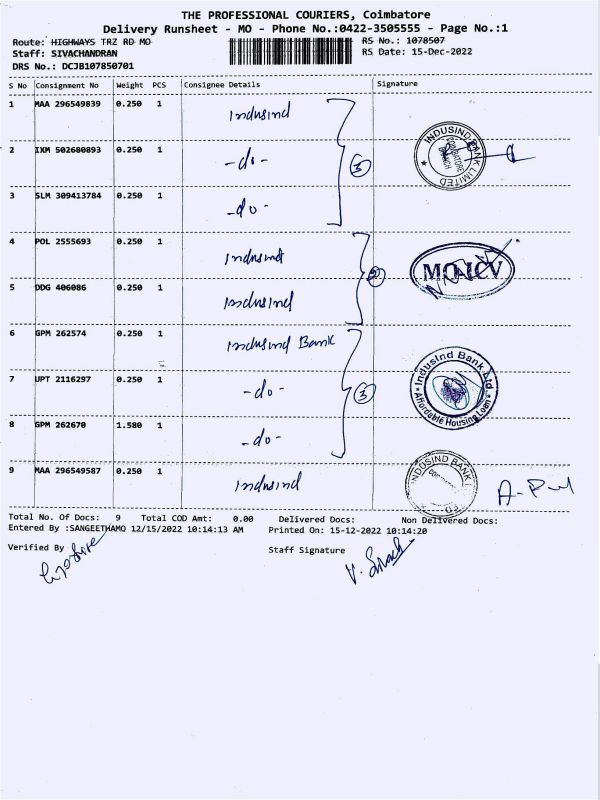 THE PROFESSIONAL COURIERS, Coimbatore
Delivery Runsheet - MO - Phone No.:0422-3505555 - Page No.:1
Route: HIGHWAYS TRZ RD MO RS No.: 1078507
Staff: SIVACHANDRAN RS Date: 15-Dec-2022
DRS No.: DCJB107850701
S No Consignment No Weight PCS Consignee Details Signature
1 MAA 296549839 0.250 1 Indusind
2 IXM 502680893 0.250 1 -do-
INDUSIND BANK LIMITED COIMBATORE BRANCH
3 SLM 309413784 0.250 1 -do-
3
4 POL 2555693 0.250 1 Indusind
5 DDG 406086 0.250 1 Indusind
2
6 GPM 262574 0.250 1 Indusind Bank
7 UPT 2116297 0.250 1 -do-
3
IndusInd Bank Ltd. Affordable Housing Loan
8 GPM 262670 1.580 1 -do-
9 MAA 296549587 0.250 1 Indusind
INDUSIND BANK
Total No. Of Docs: 9 Total COD Amt: 0.00 Delivered Docs: Non Delivered Docs:
Entered By :SANGEETHAMO 12/15/2022 10:14:13 AM Printed On: 15-12-2022 10:14:20
Verified By Staff Signature